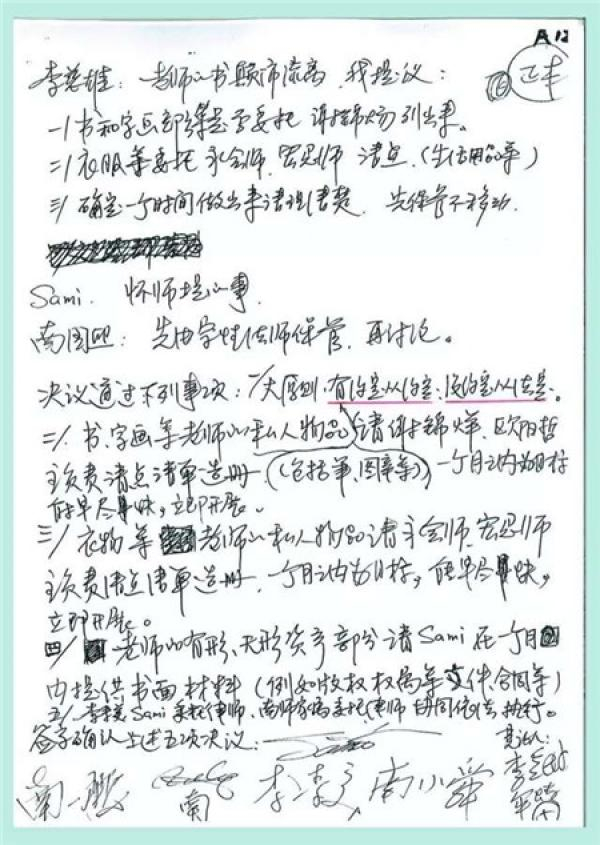 A 12
李慈雄：老师的书颠沛流离，我提议：
一/书和字画部分 委托 谢锦烊 列出来。
二/衣服等委托永会师、宏忍师清点，(生活用品等)
三/确定一个时间做出来清理清楚，先保管不移动.
Sami. 怀师提的事.
南国熙：先由宏忍法师保管，再讨论。
决议通过下列事项：一/大原则，有约定从约定、没约定从法定。
二/、书、字画等老师的私人物品请谢锦烊、欧阳哲
主负责清点清单造册，(包括笔、图章等) 一个月之内为目标
能早尽早快，立即开展。
三/衣物等 老师的私人物品请永会师、宏忍师
主负责清点清单造册，一个月之内为目标，能早尽早快，
立即开展。
四/ 老师的有形、无形资产部分请Sami在一个月
内提供书面材料(例如版权权属等文件、合同等)
五/李传洪 Sami委托律师，南师家属委托律师协同依法执行。
签字确认上述五项决议：
南一鹏 南 李 南小舜